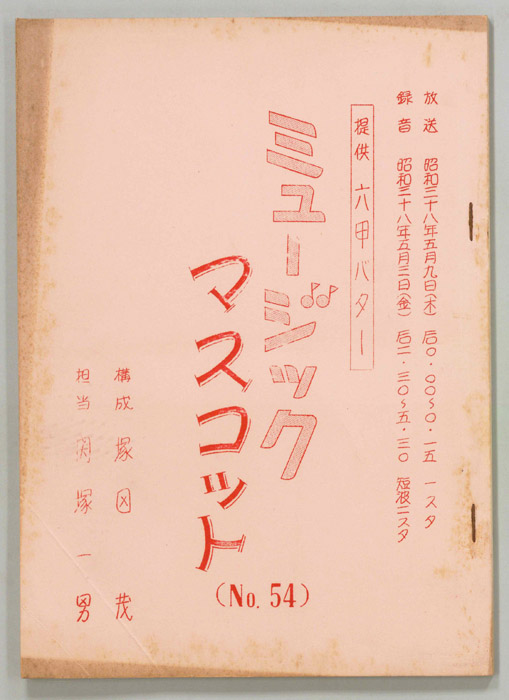 放送 昭和三十八年五月九日(木) 后〇・〇〇〜〇・一五 一スタ
録音 昭和三十八年五月三日(金) 后二・三〇〜五・三〇 短波二スタ
提供 六甲バター
ミュージック
マスコット
(No. 54)
構成 塚田 茂
担当 塚 一男